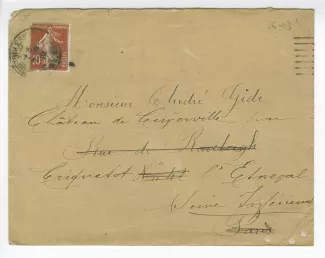 Monsieur André Gide
Château de Cuverville par
Rue de Ranelagh
Criquetot l'Esneval
Seine Inférieure
Paris